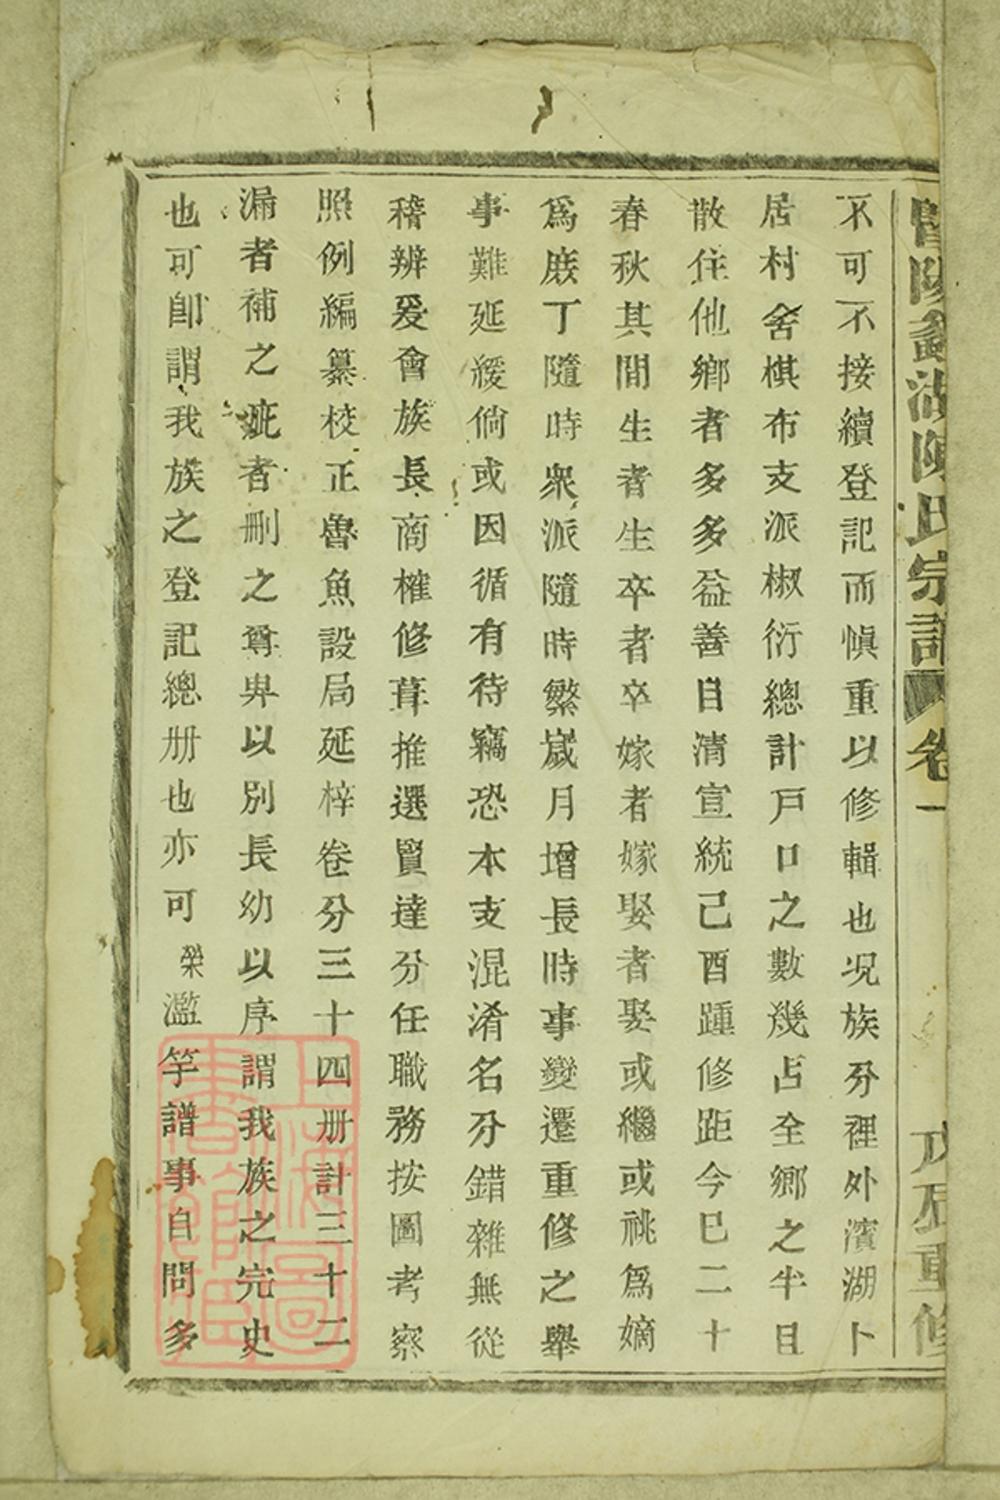 暨陽鑑湖陳氏宗譜 卷一 戊辰重修
不可不接續登記而愼重以修輯也况族分裡外濱湖卜
居村舍棋布支派椒衍總計戸口之數幾占全鄉之半且
散住他鄉者多多益善自清宣統己酉踵修距今已二十
春秋其間生者生卒者卒嫁者嫁娶者娶或繼或祧爲嫡
爲庶丁隨時衆派隨時繁嵗月增長時事變遷重修之舉
事難延緩倘或因循有待竊恐本支混淆名分錯雜無從
稽辨爰會族長商榷修葺推選賢達分任職務按圖考察
照例編纂校正魯魚設局延梓卷分三十四册計三十二
漏者補之疵者刪之尊卑以別長幼以序謂我族之完史
也可卽謂我族之登記總册也亦可榮濫竽譜事自問多
上海圖書館藏